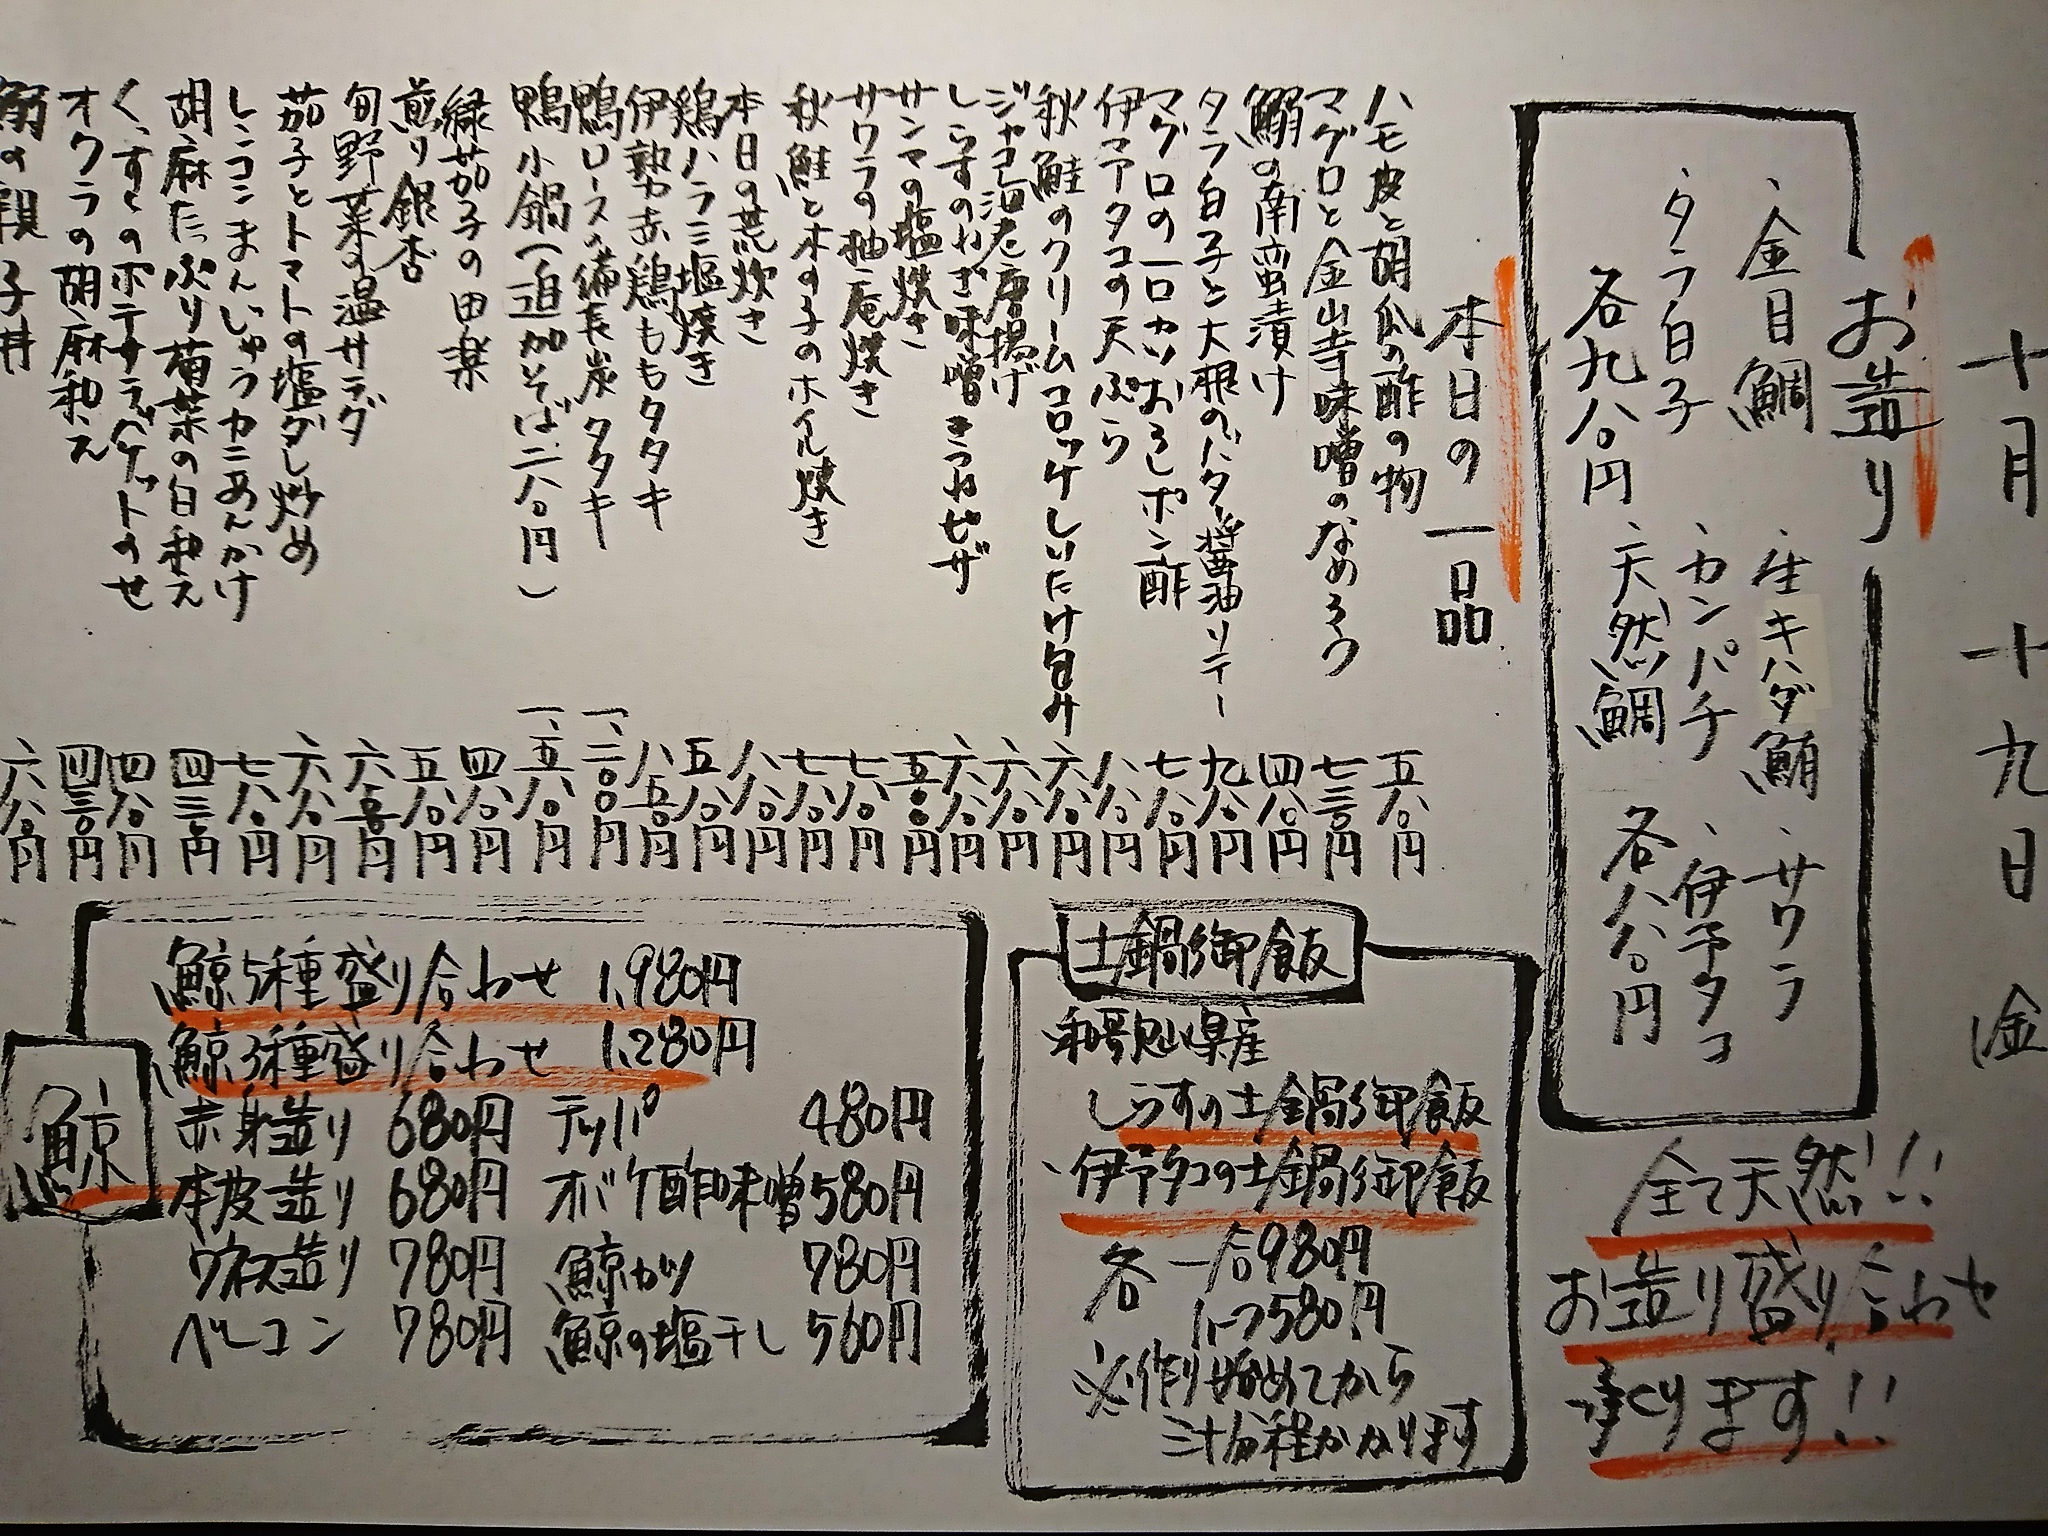 十月十九日(金
お造り
、金目鯛
、生キハダ鮪
、サワラ
、タラ白子
、カンパチ
、伊予タコ
各九八〇円
、天然鯛
各八八〇円
全て天然!!
お造り盛り合わせ
承ります!!
本日の一品
ハモ皮と胡瓜の酢の物 五八〇円
マグロと金山寺味噌のなめろう 七三〇円
鰯の南蛮漬け 四八〇円
タラ白子と大根のバター醤油ソテー 九八〇円
マグロの一口カツおろしポン酢 七八〇円
伊予タコの天ぷら 八八〇円
秋鮭のクリームコロッケしいたけ包み 六八〇円
ジャコ海老唐揚げ 六八〇円
しらすのねぎ味噌きつねピザ 六八〇円
サンマの塩焼き 五〇〇円
サワラの柚庵焼き 七八〇円
秋鮭と木の子のホイル焼き 七八〇円
本日の荒炊き 八八〇円
鶏ハラミ塩焼き 五八〇円
伊勢赤鶏ももタタキ 八五〇円
鴨ロースの備長炭タタキ 一、二〇〇円
鴨小鍋(追加そば二八〇円) 一、五八〇円
緑茄子の田楽 四八〇円
煎り銀杏 五八〇円
旬野菜の温サラダ 六五〇円
茄子とトマトの塩ダレ炒め 六八〇円
レンコンまんじゅうカニあんかけ 七八〇円
胡麻たっぷり菊菜の白和え 四三〇円
くずしのポテサラバゲットのせ 四八〇円
オクラの胡麻和え 四三〇円
土鍋御飯
和歌山県産
しらすの土鍋御飯
、伊予タコの土鍋御飯
各 一合980円
1つ580円
※作り始めてから
三十分程かかります
鯨
鯨5種盛り合わせ 1,980円
鯨3種盛り合わせ 1,280円
赤身造り 680円 テッパ 480円
本皮造り 680円 オバケ酢味噌 580円
ウネス造り 780円 鯨カツ 780円
ベーコン 780円 鯨の塩干し 560円